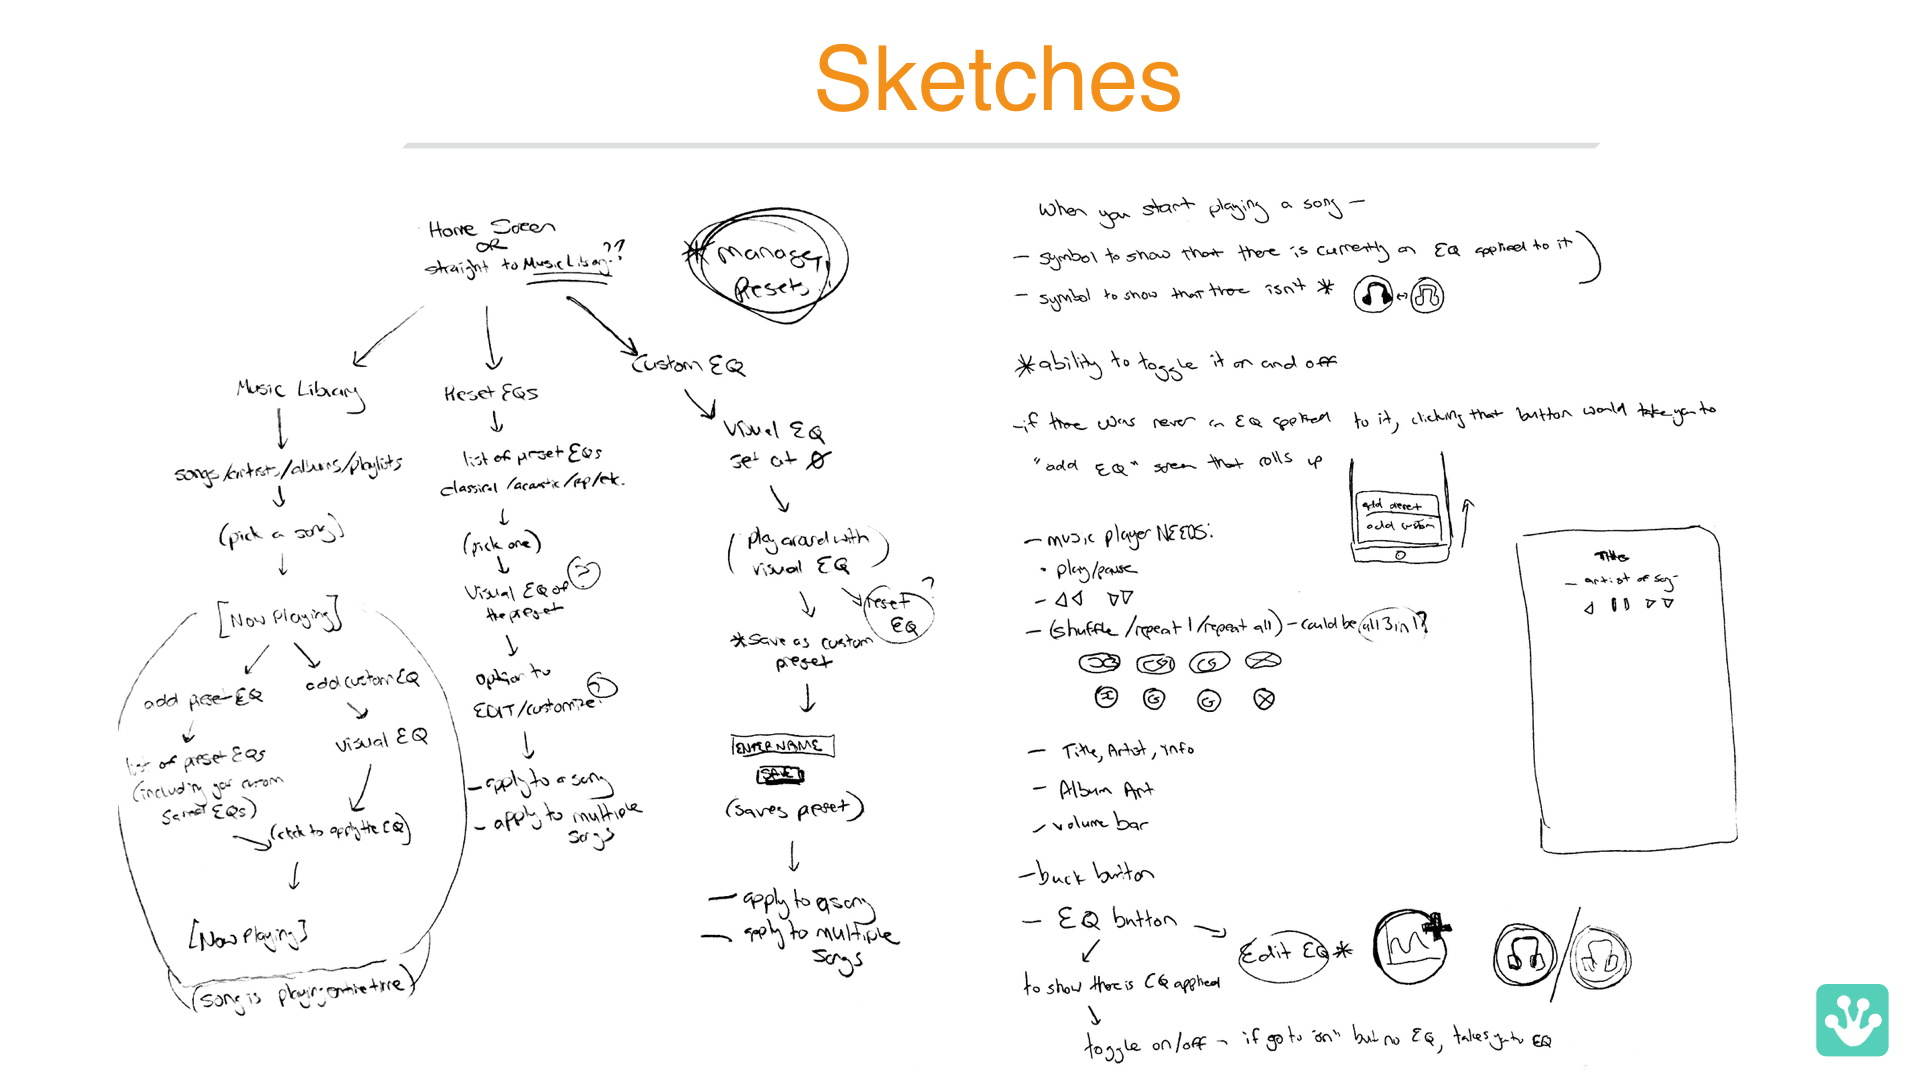 Sketches
Home Screen
OR
straight to Music Library??
* manage
presets
Music Library
songs/artists/albums/playlists
(pick a song)
[Now Playing]
add preset EQ
list of preset EQs
(including your custom
saved EQs)
add custom EQ
visual EQ
(click to apply the EQ)
[Now Playing]
(song is playing entire time)
Preset EQs
list of preset EQs
classical/acoustic/rap/etc.
(pick one)
Visual EQ of ?
the preset
option to
EDIT/customize ?
- apply to a song
- apply to multiple
songs
Custom EQ
Visual EQ
set at 0
(play around with
visual EQ)
reset ?
EQ
* save as custom
preset
ENTER NAME
SAVE
(saves preset)
- apply to a song
- apply to multiple
songs
When you start playing a song -
- symbol to show that there is currently an EQ applied to it
- symbol to show that there isn't *
* ability to toggle it on and off
- if there was never an EQ applied to it, clicking that button would take you to
"add EQ" screen that rolls up
add preset
add custom
- music player NEEDS:
• play/pause
- (shuffle/repeat 1/repeat all) - could be all 3 in 1?
- Title, Artist, info
- Album Art
- volume bar
- back button
- EQ button
Edit EQ *
to show there is EQ applied
toggle on/off - if go to "on" but no EQ, takes you to EQ
Title
- artist of song -